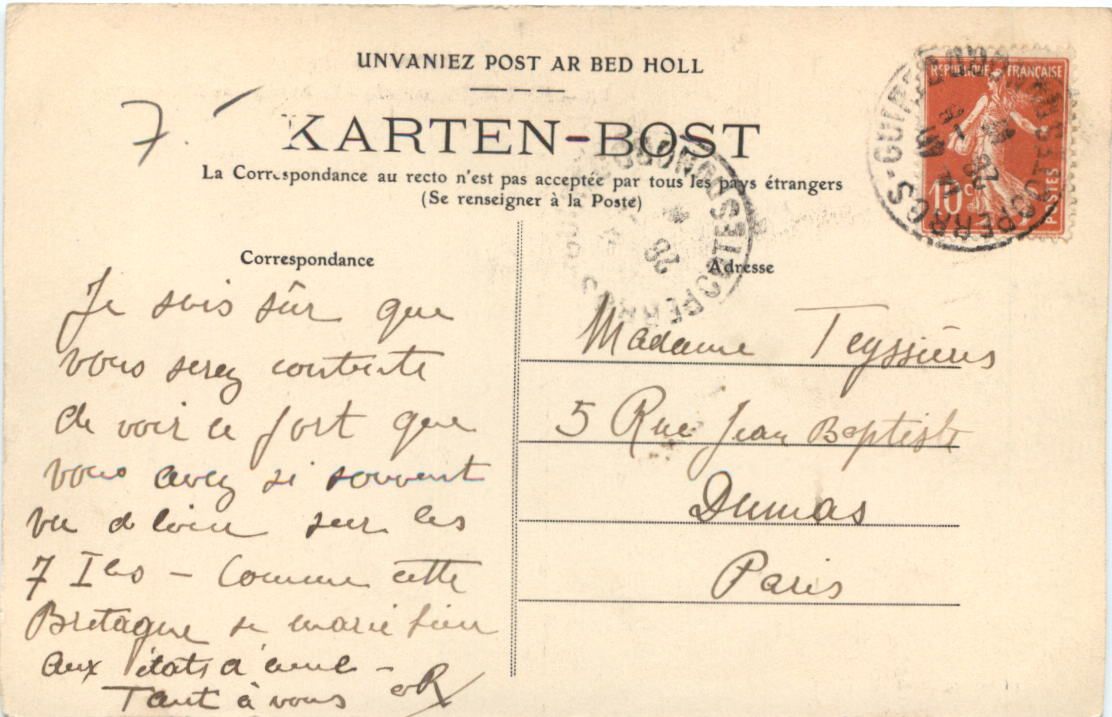 UNVANIEZ POST AR BED HOLL
7.
KARTEN-BOST
La Correspondance au recto n'est pas acceptée par tous les pays étrangers
(Se renseigner à la Poste)
REPUBLIQUE FRANÇAISE
10c
POSTES
PERROS-GUIREC
COTES DU NORD
28
Correspondance
Je suis sûr que
vous serez contente
de voir ce fort que
vous avez si souvent
vu de loin sur les
7 Iles – Comme cette
Bretagne se marie bien
aux états d'âme –
Tout à vous
R
Adresse
Madame Teyssières
5 Rue Jean Baptiste
Dumas
Paris